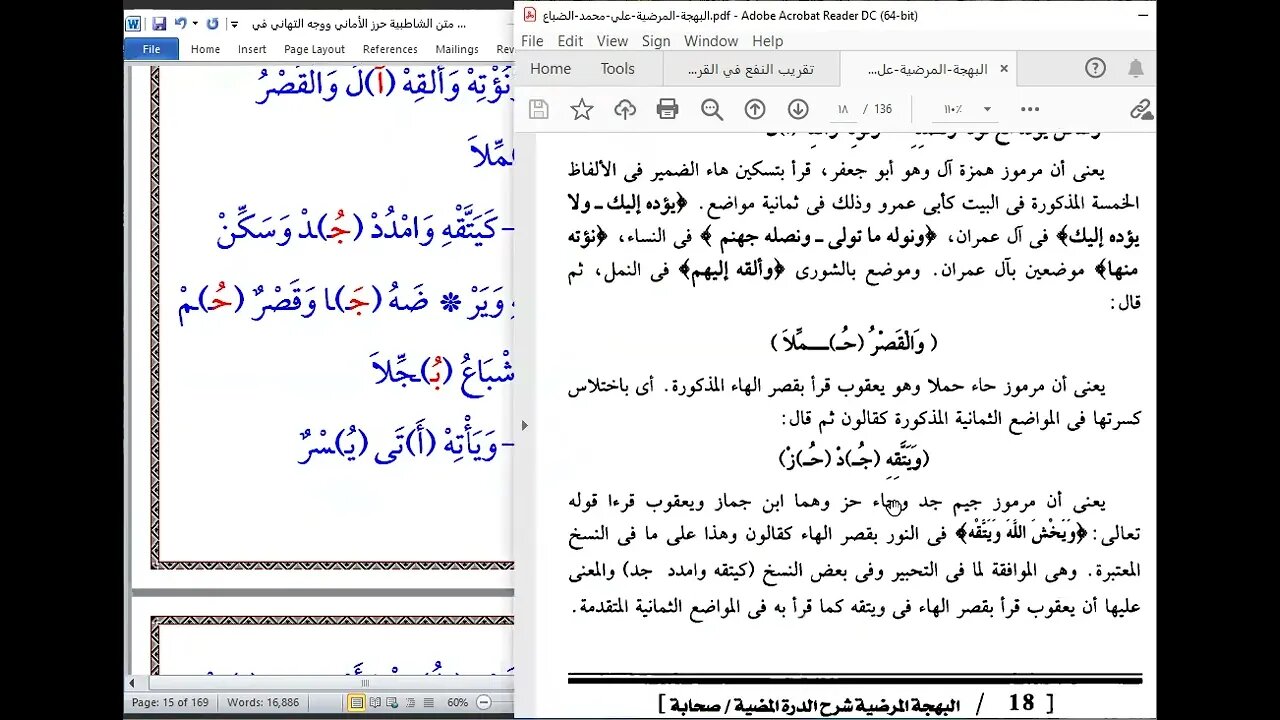 متن الشاطبية حرز الأماني ووجه التهاني في ...
File Home Insert Page Layout References Mailings
نُؤْتِهْ وَأَلْقِهْ (آ)لَ وَالْقَصْرُ
كَيَتَّقْهِ وَامْدُدْ (جُ)دْ وَسَكِّنْ
وَيَرْ * ضَهُ (جَ)ا وَقَصْرٌ (حُ)مْ
شْبَاعُ (بُ)جِّلاَ
وَيَأْتِهْ (أَ)تَى (يُ)سْرٌ
Page: 15 of 169 Words: 16,886 60%
البهجة-المرضية-علي-محمد-الضباع.pdf - Adobe Acrobat Reader DC (64-bit)
File Edit View Sign Window Help
Home Tools تقريب النفع في القر... البهجة-المرضية-عل... ×
١٨ / 136 ١١٠٪
يعنى أن مرموز همزة آل وهو أبو جعفر، قرأ بتسكين هاء الضمير فى الألفاظ
الخمسة المذكورة فى البيت كأبى عمرو وذلك فى ثمانية مواضع. ﴿يؤده إليك ـ ولا
يؤده إليك﴾ فى آل عمران، ﴿ونوله ما تولى ـ ونصله جهنم﴾ فى النساء، ﴿نؤته
منها﴾ موضعين بآل عمران. وموضع بالشورى ﴿وألقه إليهم﴾ فى النمل، ثم
قال:
( وَالْقَصْرُ (حُـ)ـمِّلاَ )
يعنى أن مرموز حاء حملا وهو يعقوب قرأ بقصر الهاء المذكورة. أى باختلاس
كسرتها فى المواضع الثمانية المذكورة كقالون ثم قال:
(وَيَتَّقِهِ (جُـ)دْ (حُـ)زْ)
يعنى أن مرموز جيم جد وحاء حز وهما ابن جماز ويعقوب قرءا قوله
تعالى: ﴿وَيَخْشَ اللَّهَ وَيَتَّقْه﴾ فى النور بقصر الهاء كقالون وهذا على ما فى النسخ
المعتبرة. وهى الموافقة لما فى التحبير وفى بعض النسخ (كيتقه وامدد جد) والمعنى
عليها أن يعقوب قرأ بقصر الهاء فى ويتقه كما قرأ به فى المواضع الثمانية المتقدمة.
[ 18 / البهجة المرضية شرح الدرة المضية / صحابة ]